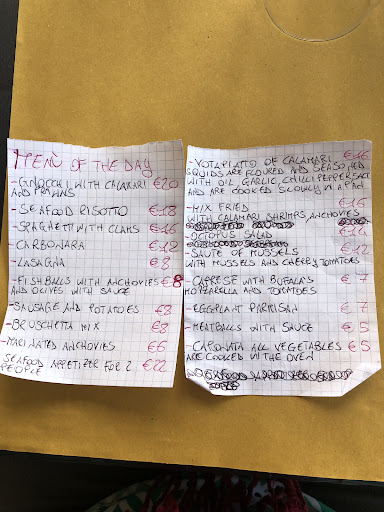 MENÙ OF THE DAY
-GNOCCHI WITH CALAMARI €20
AND PRAWNS
-SEAFOOD RISOTTO €18
-SPAGHETTI WITH CLAMS €16
-CARBONARA €12
-LASAGNA €8
-FISHBALLS WITH ANCHOVIES €8
AND OLIVES WITH SAUCE
-SAUSAGE AND POTATOES €8
-BRUSCHETTA MIX €8
-MARINATED ANCHOVIES €6
SEAFOOD APPETIZER FOR 2 €22
PEOPLE
-VOTAPIATTO OF CALAMARI €16
SQUIDS ARE FLOURED AND SEASONED
WITH OIL, GARLIC, CHILLI PEPPER, SALT
AND ARE COOKED SLOWLY IN A PAN
-MIX FRIED €15
WITH CALAMARI SHRIMPS ANCHOVIES
-OCTOPUS SALAD €14
-SAUTE OF MUSSELS €12
WITH MUSSELS AND CHERRY TOMATOES
-CAPRESE WITH BUFALA'S € 7
MOZZARELLA AND TOMATOES
-EGGPLANT PARMISAN € 7
-MEATBALLS WITH SAUCE € 5
-CAPONATA ALL VEGETABLES € 5
ARE COOKED IN THE OVEN